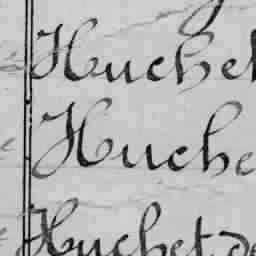 Huchet
Huche
Huchet de